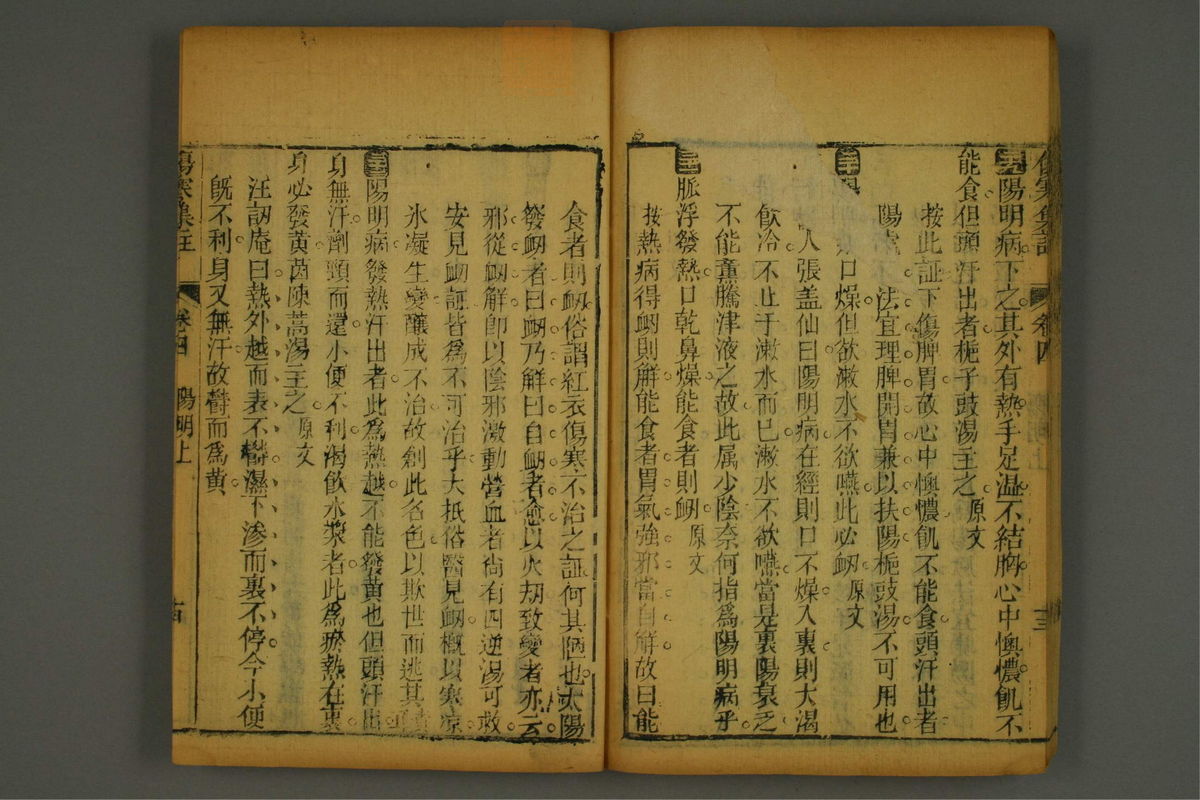 傷寒集註 卷四 十三
陽明病下之其外有熱手足溫不結胸心中懊憹飢不
能食但頭汗出者梔子豉湯主之 原文
按此証下傷脾胃故心中懊憹飢不能食頭汗出者
陽虛 法宜理脾開胃兼以扶陽梔豉湯不可用也
口燥但欲漱水不欲嚥此必衂 原文
人張盖仙曰陽明病在經則口不燥入裏則大渴
飲冷不止于漱水而已漱水不欲嚥當是裏陽衰乏
不能熏騰津液之故此属少陰奈何指為陽明病乎
脈浮發熱口乾鼻燥能食者則衂 原文
按熱病得衂則解能食者胃氣強邪當自解故曰能
食者則衂俗謂紅衣傷寒不治之証何其陋也太陽
發衂者曰衂乃解曰自衂者愈以火刼致變者亦云
邪從衂解卽以陰邪激動營血者尙有四逆湯可救
安見衂証皆為不可治乎大抵俗醫見衂概以寒凉
氷凝生變釀成不治故創此名色以欺世而逃其
陽明病發熱汗出者此為熱越不能發黃也但頭汗出
身無汗劑頸而還小便不利渴飲水漿者此為瘀熱在裏
身必發黃茵陳蒿湯主之 原文
汪訒庵曰熱外越而表不鬱濕下滲而裏不停今小便
旣不利身又無汗故鬱而爲黃
傷寒集註 卷四 陽明上 十四